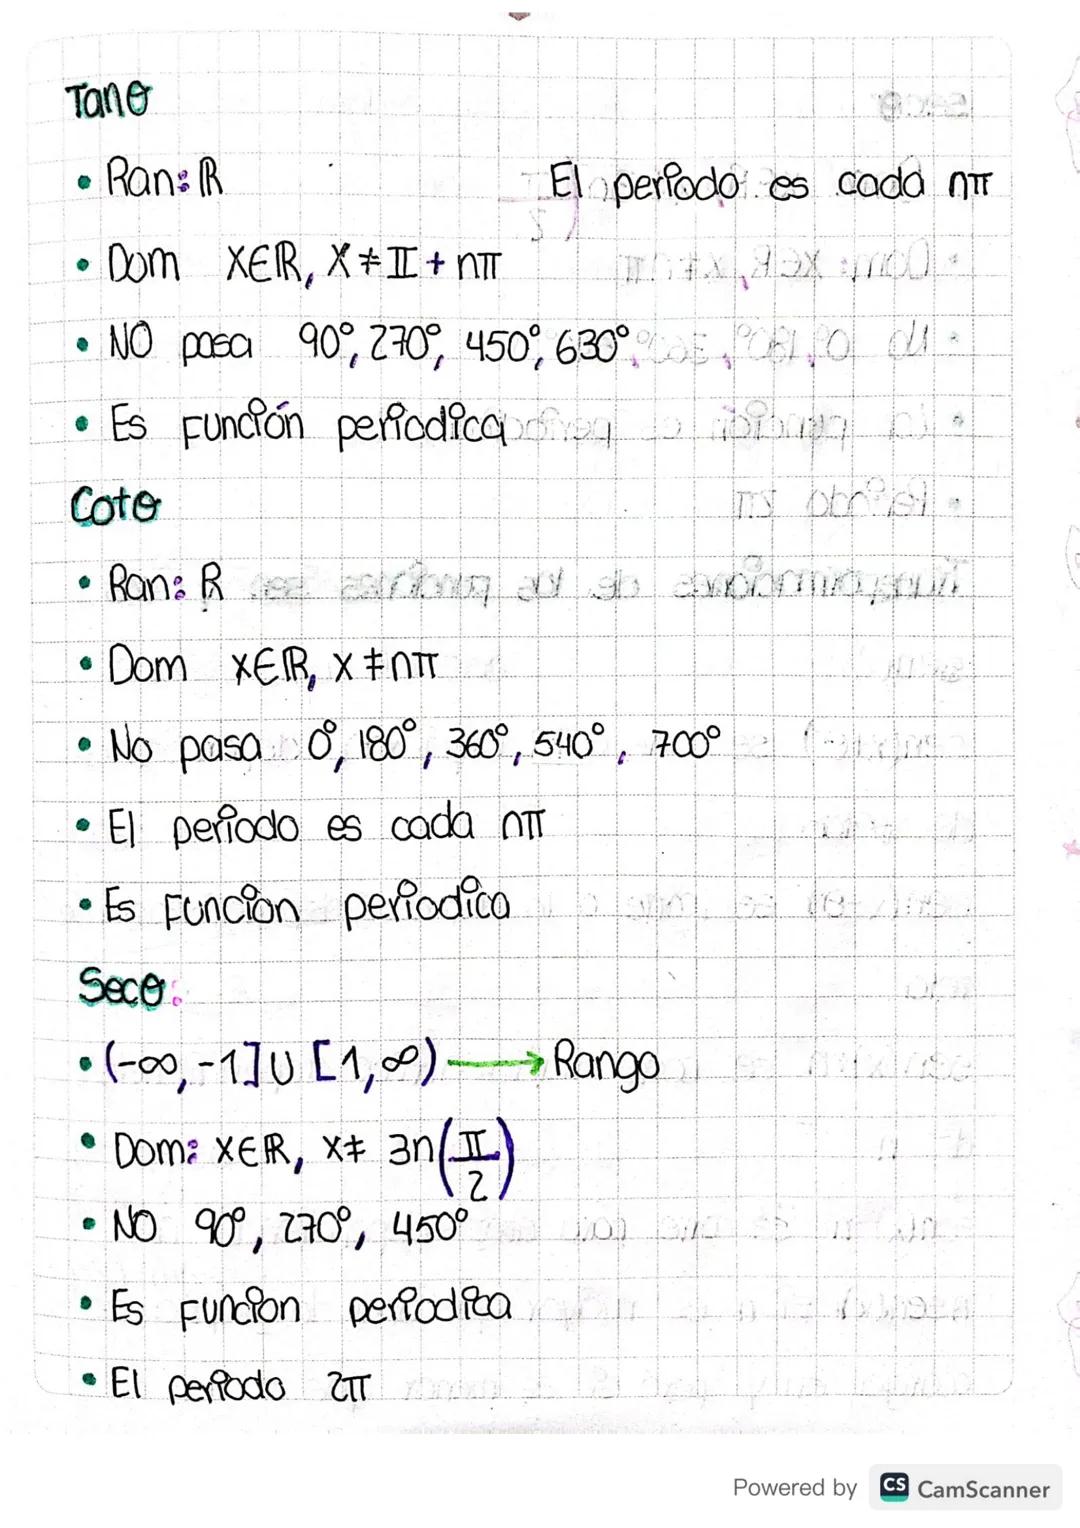 Tanθ
• Ran: ℝ
El periodo es cada nπ
• Dom X∈ℝ, X ≠ π + nπ
• NO pasa 90°, 270°, 450°, 630°
• Es Función periodica
Cotθ
• Ran: ℝ
• Dom X∈ℝ, X ≠ nπ
• No pasa 0°, 180°, 360°, 540°, 700°
• El periodo es cada nπ
• Es Funcion periodica
Secθ:
• (-∞, -1] ∪ [1, ∞) → Rango
• Dom: X∈ℝ, X ≠ 3n(π/2)
• NO 90°, 270°, 450°
• Es Funcion periodica
• El periodo 2π
Powered by CS CamScanner